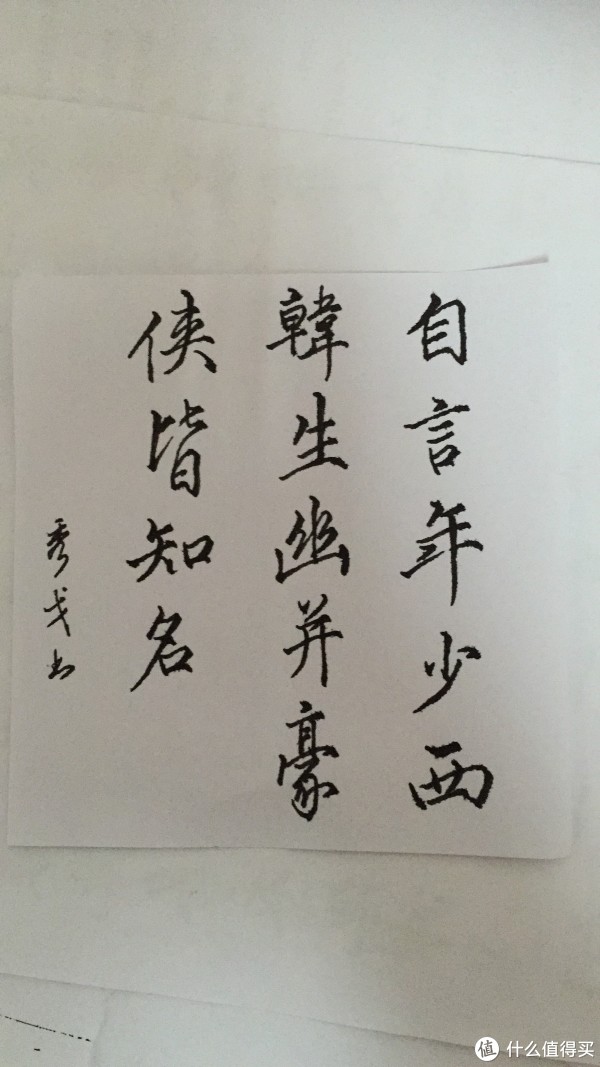 自言年少西
韓生幽并豪
侠皆知名
秀戈书
值 什么值得买